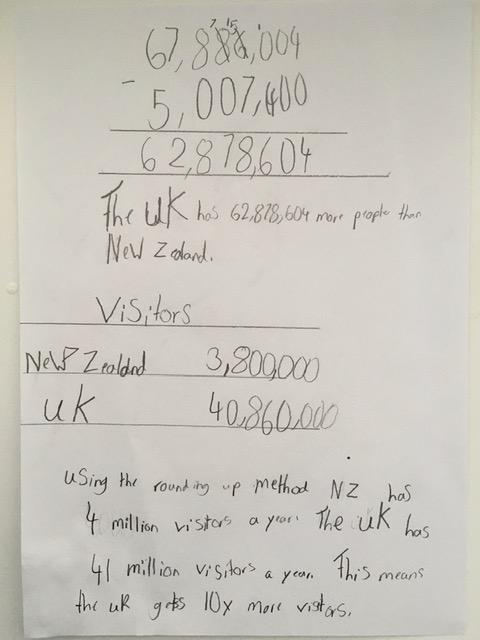 7 15 1
67,886,004
- 5,007,400
62,878,604
The UK has 62,878,604 more people than
New Zealand.
Visitors
New Zealand 3,800,000
UK 40,860,000
using the rounding up method NZ has
4 million visitors a year. The UK has
41 million visitors a year. This means
the UK gets 10x more vistors.